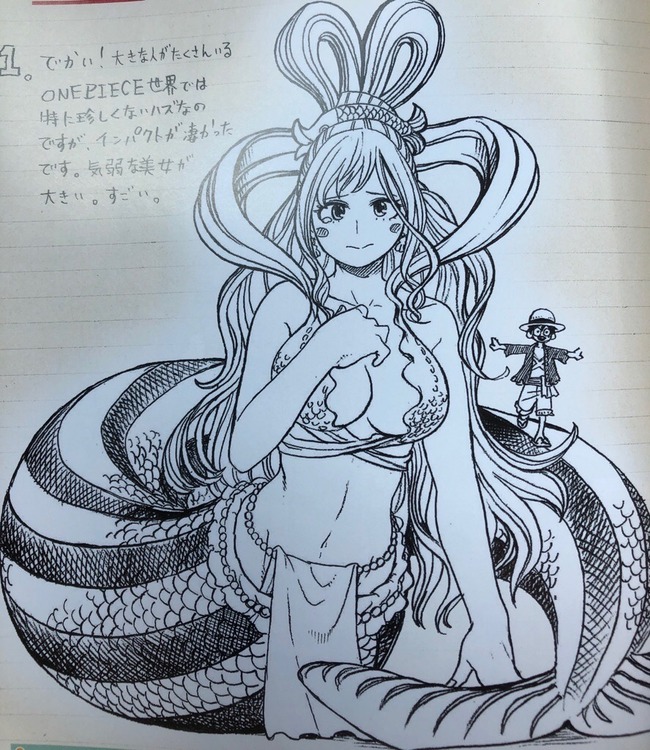 1。
でかい！大きな人がたくさんいる
ONEPIECE世界では
特に珍しくないハズなの
ですが、インパクトが凄かった
です。気弱な美女が
大きい。すごい。